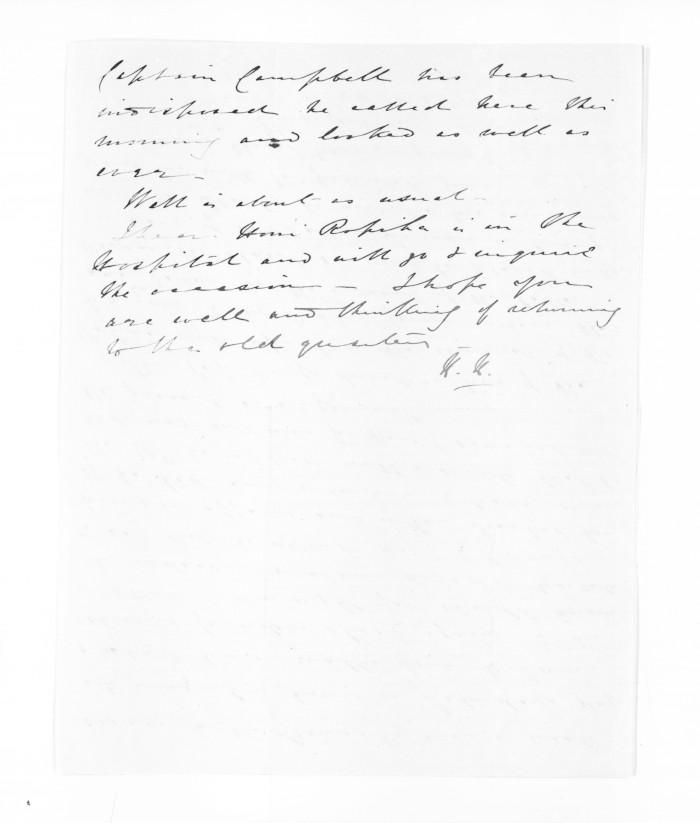 Captain Campbell has been
indisposed he called here this
morning and looked as well as
ever -
Well is about as usual -
I hear Honi Ropiha is in the
Hospital and will go & inquire
the occasion - I hope you
are well and thinking of returning
to the old quarters -